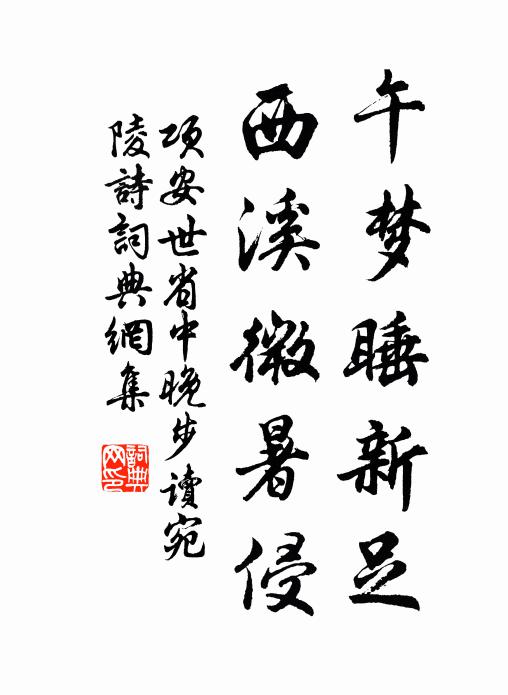 午梦睡新足
西溪微暑侵
项安世省中晚步 读宛
陵詩詞典網集
詞典网印